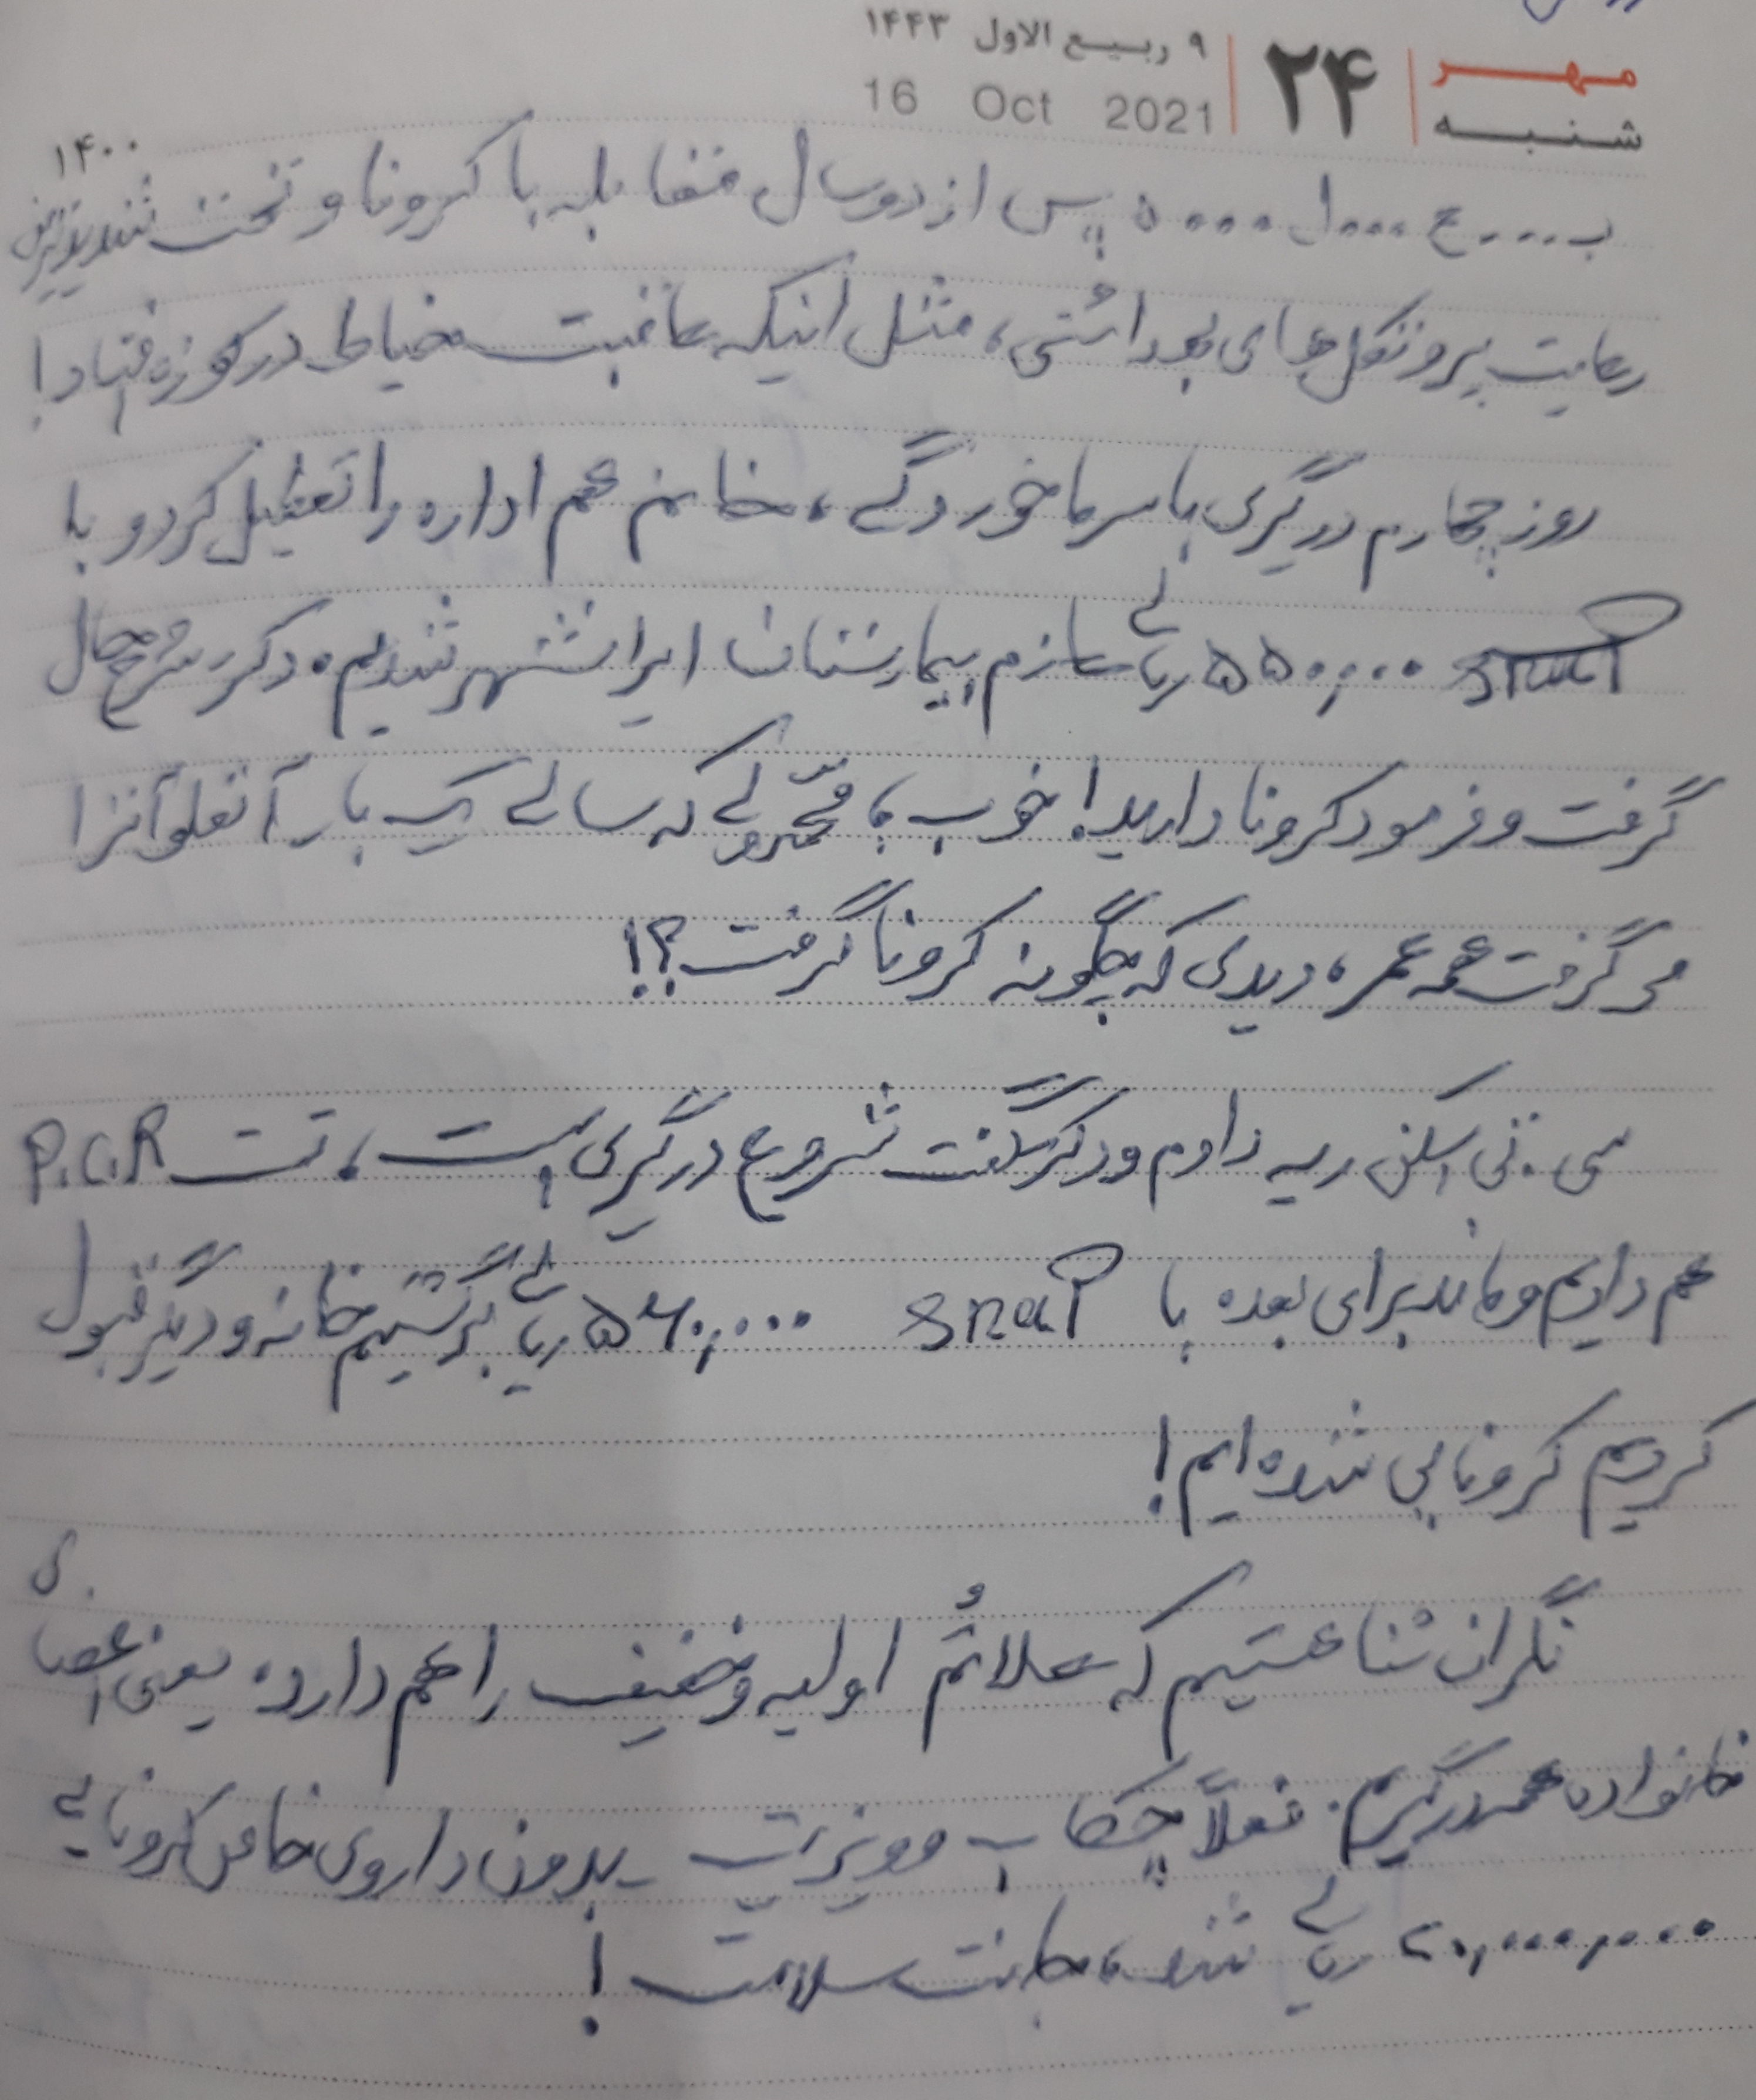 مهر
شنبه
۲۴
۹ ربیع الاول ۱۴۴۳
16 Oct 2021
۱۴۰۰
ب....ع....ل....ه پس از دو سال مقابله با کرونا و تحت شدیدترین
رعایت پروتکل‌های بهداشتی، مثل اینکه عاقبت خیاط در کوزه افتاد!
روز چهارم درگیری با سرماخوردگی، خانم هم اداره را تعطیل کرد و با
snap ۵۵۰,۰۰۰ ریالی عازم بیمارستان ایرانشهر شدیم. دکتر شرح حال
گرفت و فرمود کرونا دارید! خوب، که سالی یک بار آنفلوآنزا
گرفت همه عمر، دیدی که چگونه کرونا گرفت؟!
سی.تی اسکن ریه دادم و دکتر گفت شروع درگیری است، تست P.C.R
هم دادیم و ماند برای بعد. با snap ۵۶۰,۰۰۰ ریالی برگشتیم خانه و دیگر قبول
کردیم کرونایی شده‌ایم!
نگران ثنا هستیم که علائم اولیه و خفیف را هم دارد. یعنی اعضای
خانواده همه درگیریم. فعلاً چکاپ و ویزیت بدون داروی خاص کرونایی
۲۰,۰۰۰,۰۰۰ ریالی شد، جانت سلامت!